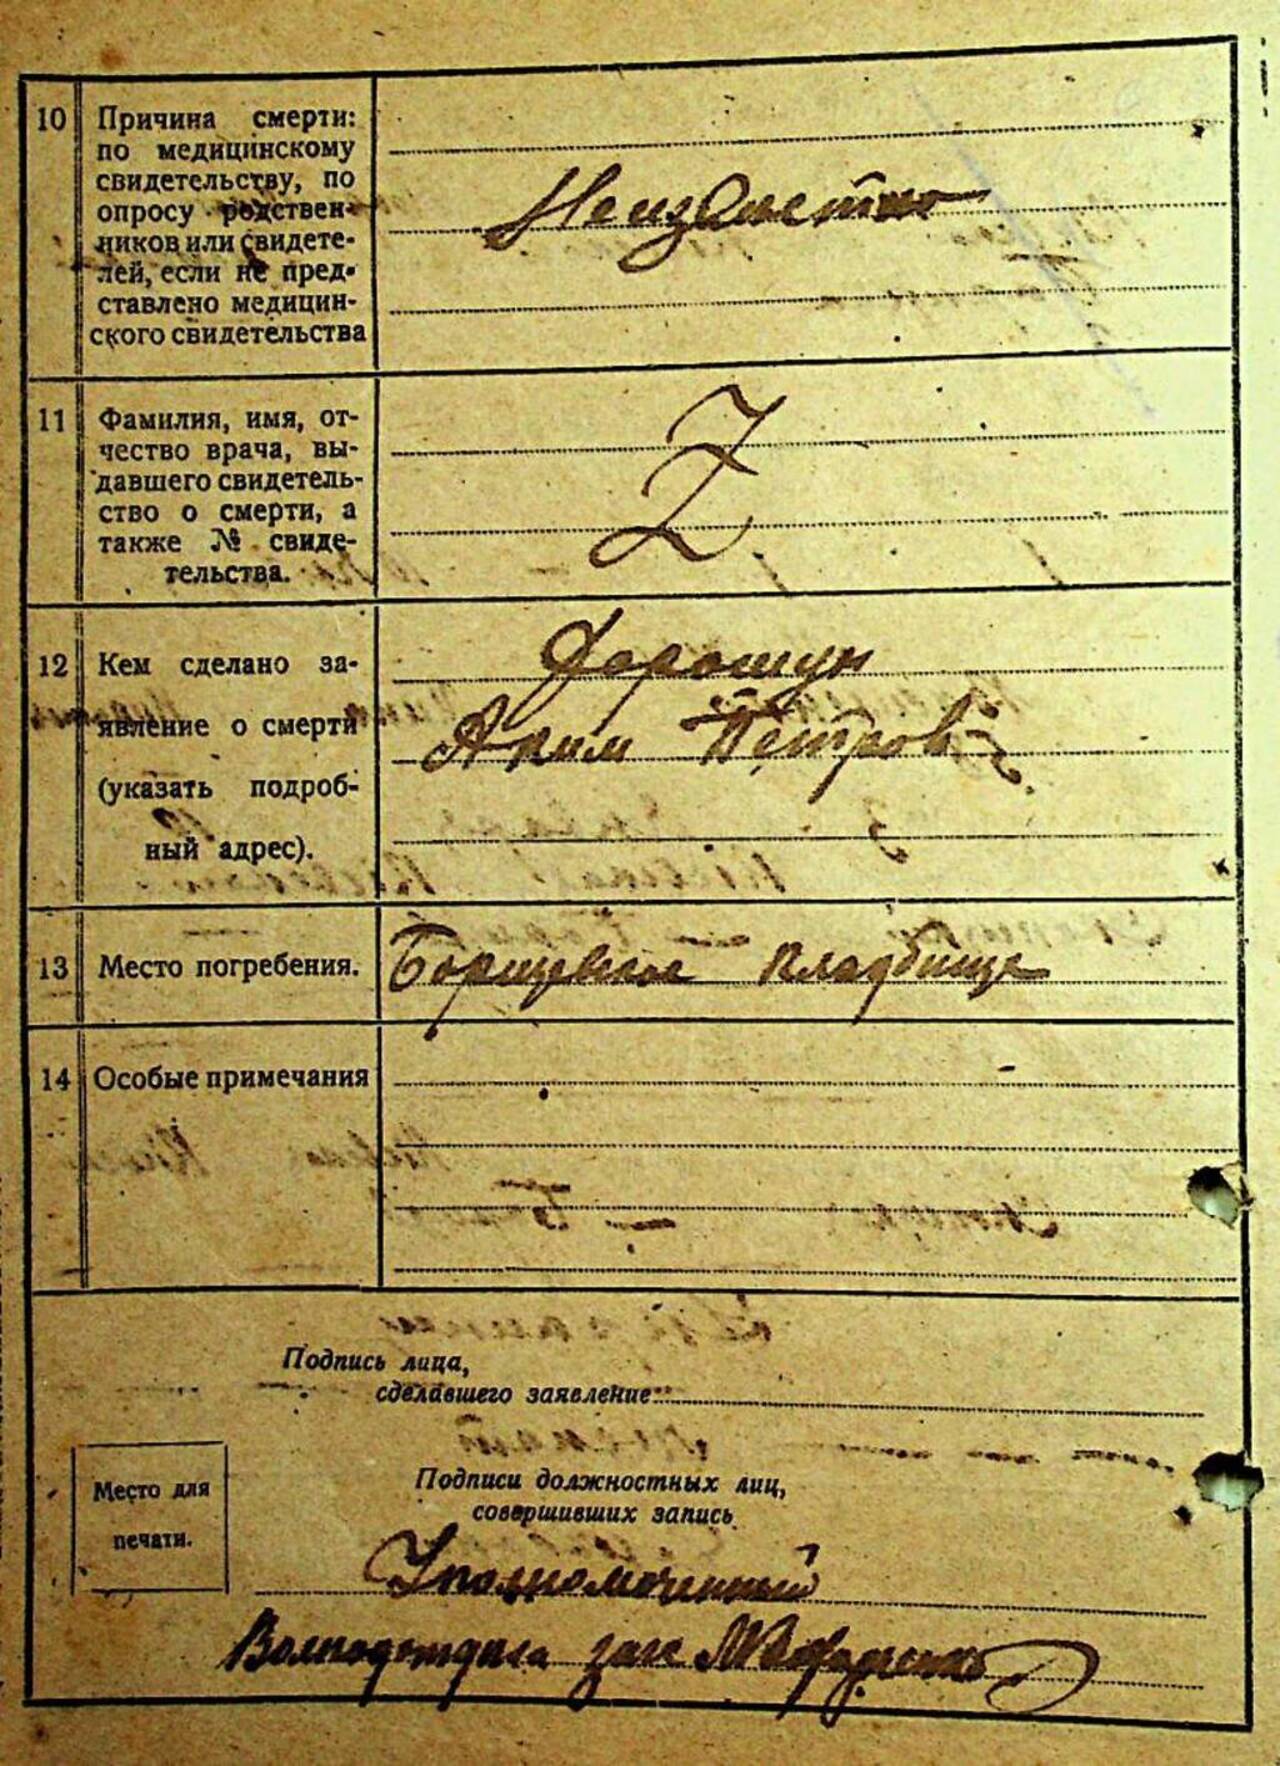 10 Причина смерти:
по медицинскому
свидетельству, по
опросу родствен-
ников или свидете-
лей, если не пред-
ставлено медицин-
ского свидетельства
Неизвестно
11 Фамилия, имя, от-
чество врача, вы-
давшего свидетель-
ство о смерти, а
также № свиде-
тельства.
Z
12 Кем сделано за-
явление о смерти
(указать подроб-
ный адрес).
Дорошун
Аким Петров
13 Место погребения.
Борщевское кладбище
14 Особые примечания
Подпись лица,
сделавшего заявление:
Место для
печати.
Подписи должностных лиц,
совершивших запись
Уполномоченный
загс